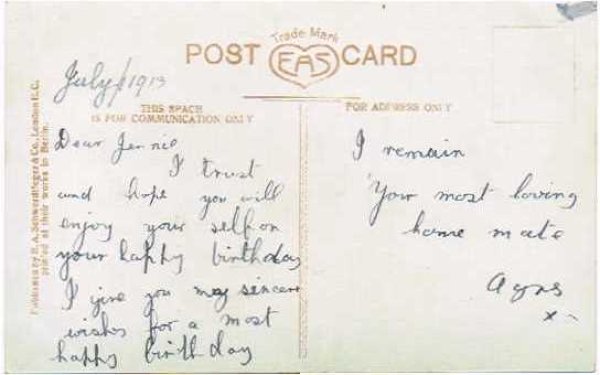 Trade Mark
POST EAS CARD
July 1913
THIS SPACE
IS FOR COMMUNICATION ONLY
FOR ADDRESS ONLY
Published by E. A. Schwerdtfeger & Co., London E.C.
printed at their works in Berlin.
Dear Jennie
I trust
and hope you will
enjoy your self on
your happy birthday
I give you my sincere
wishes for a most
happy birthday
I remain
Your most loving
home mate
Agns
x